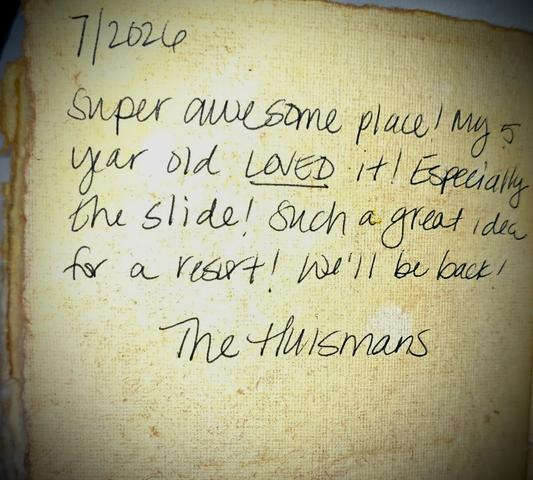 7/2026
Super awesome place! My 5
year old LOVED it! Especially
the slide! Such a great idea
for a resort! We'll be back!
The Huismans